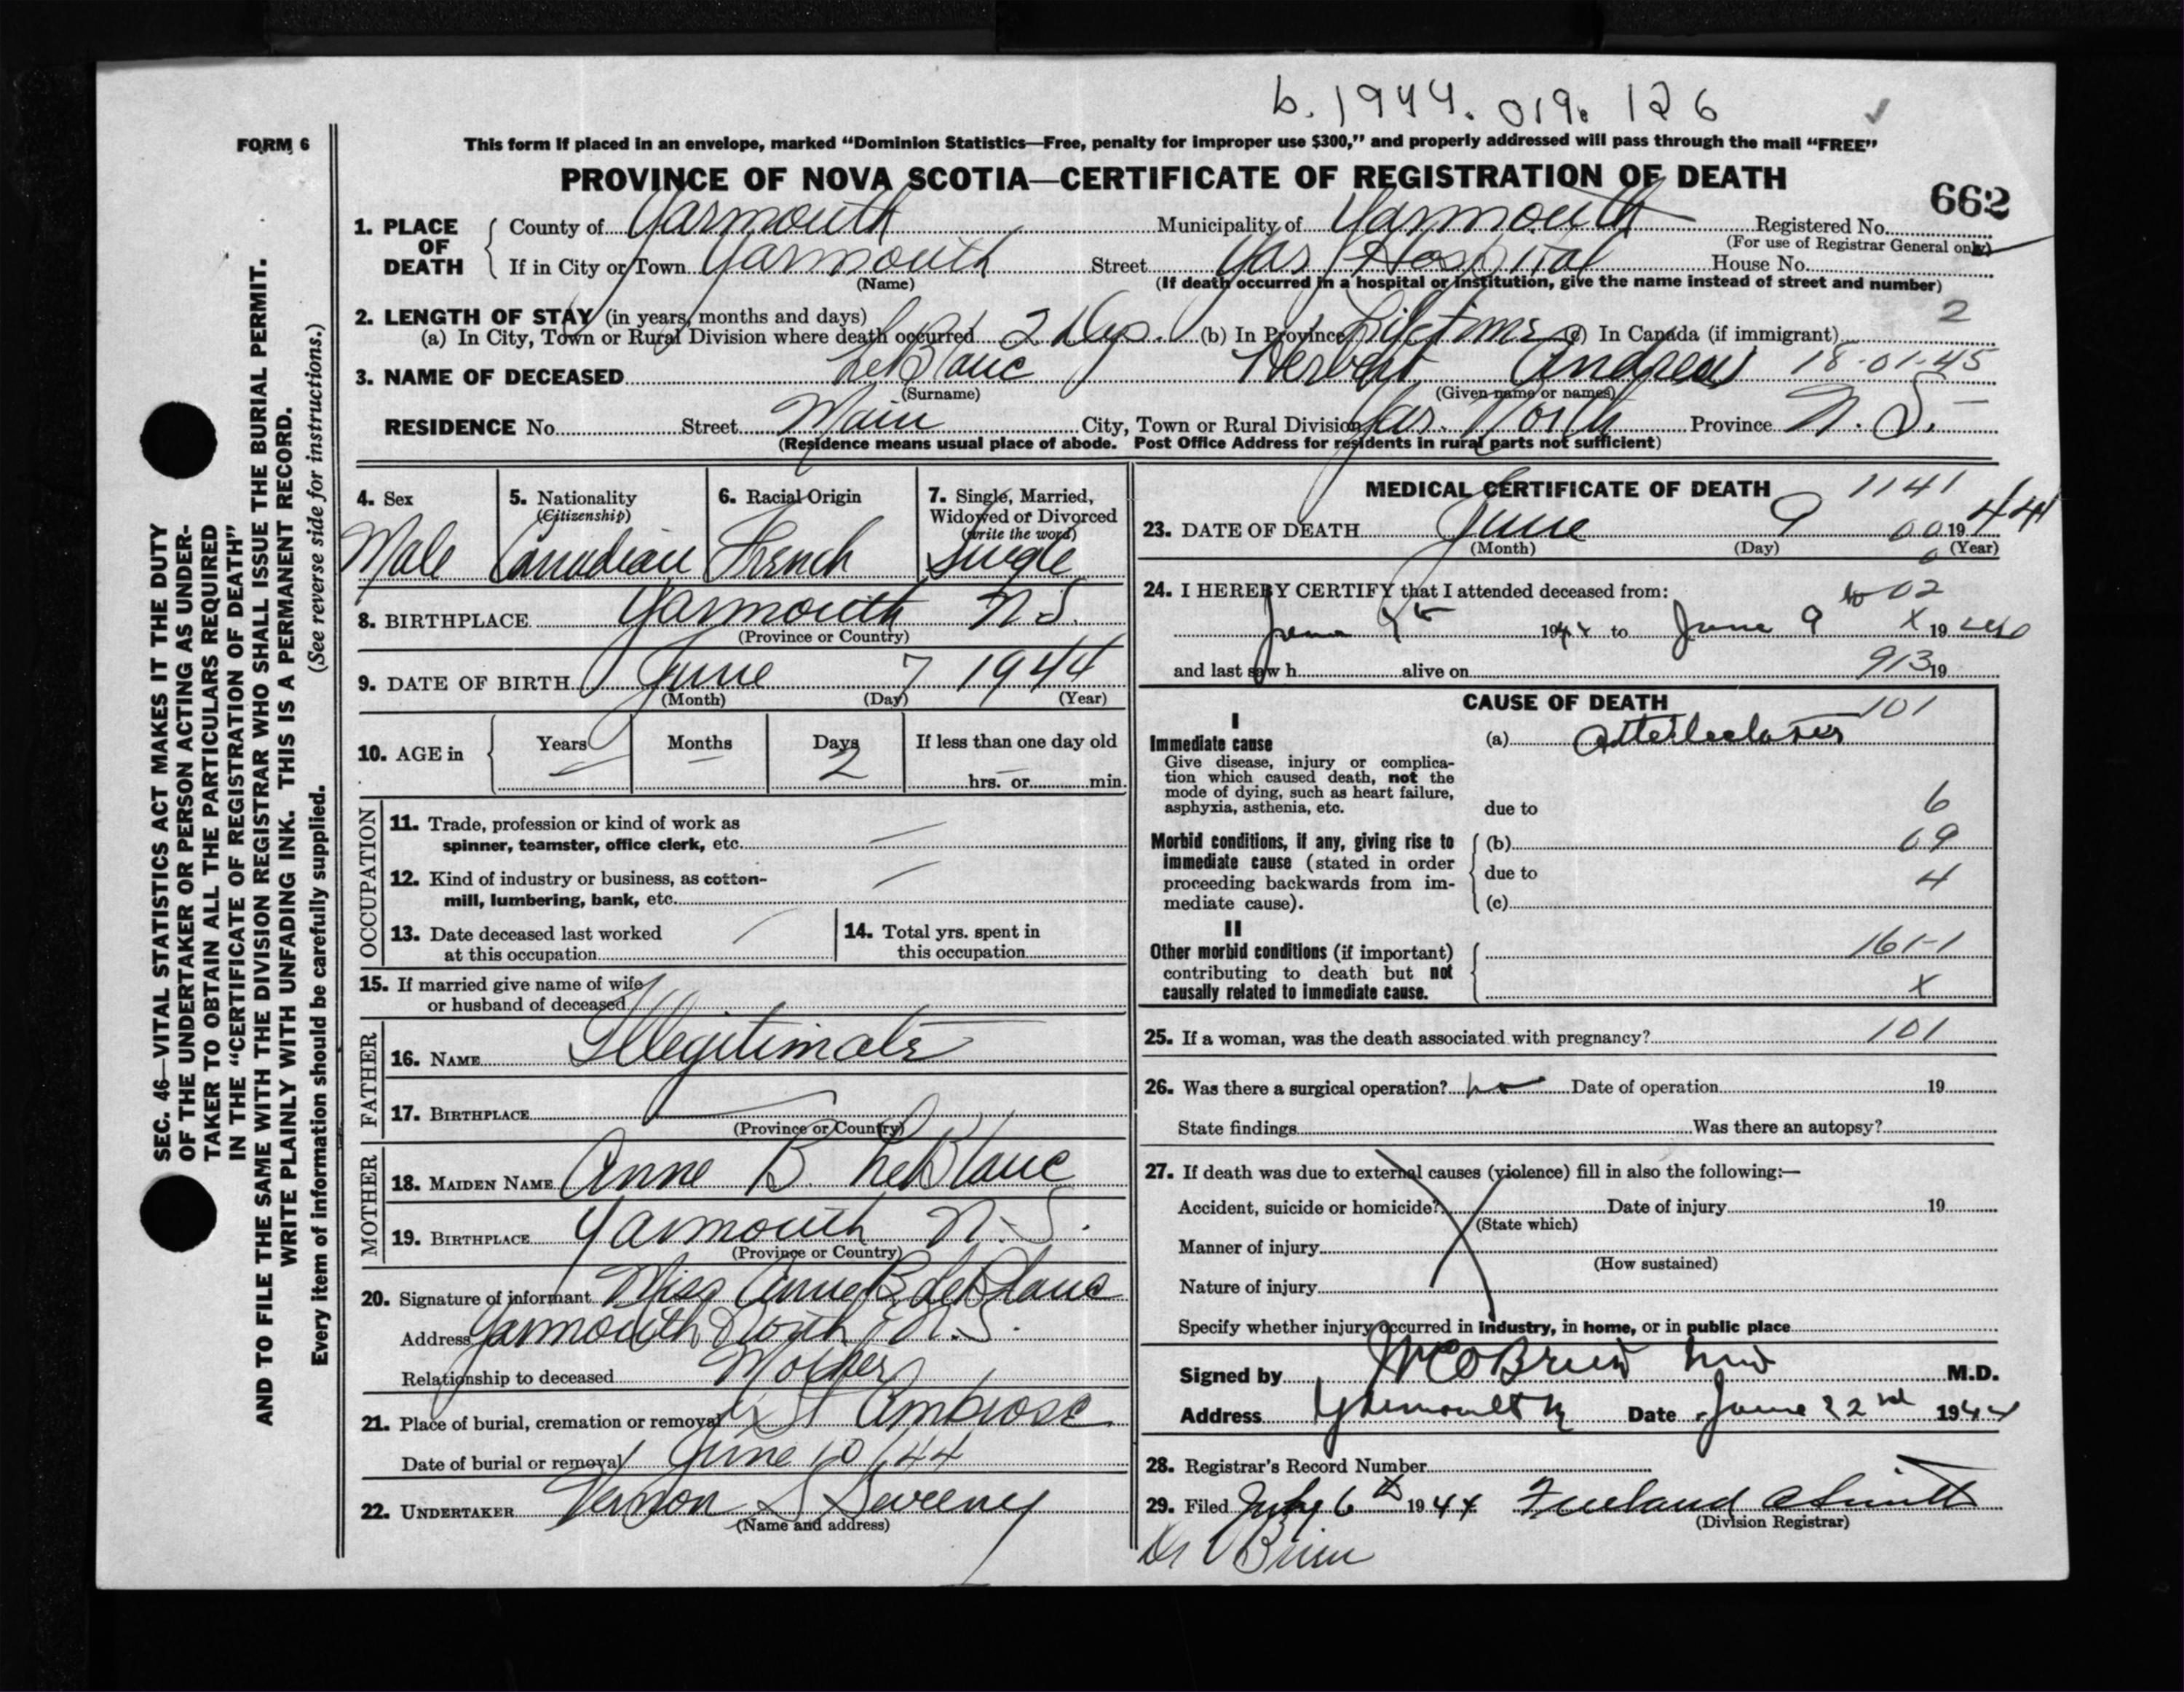 b. 1944. 019. 126
FORM 6
This form if placed in an envelope, marked “Dominion Statistics—Free, penalty for improper use $300,” and properly addressed will pass through the mail “FREE”
PROVINCE OF NOVA SCOTIA—CERTIFICATE OF REGISTRATION OF DEATH
662
1. PLACE OF DEATH { County of Yarmouth Municipality of Yarmouth Registered No.
(For use of Registrar General only)
If in City or Town Yarmouth Street Yar Hospital House No.
(Name) (If death occurred in a hospital or institution, give the name instead of street and number)
2. LENGTH OF STAY (in years, months and days) 2
(a) In City, Town or Rural Division where death occurred 2 Dys. (b) In Province Lifetime (c) In Canada (if immigrant)
3. NAME OF DECEASED LeBlanc Herbert Andrew 18-01-45
(Surname) (Given name or names)
RESIDENCE No. Street Main City, Town or Rural Division Yar. North Province N.S.
(Residence means usual place of abode. Post Office Address for residents in rural parts not sufficient)
4. Sex
Male
5. Nationality
(Citizenship)
Canadian
6. Racial Origin
French
7. Single, Married,
Widowed or Divorced
(write the word)
Single
8. BIRTHPLACE Yarmouth N.S.
(Province or Country)
9. DATE OF BIRTH June 7 1944
(Month) (Day) (Year)
10. AGE in { Years — Months — Days 2 If less than one day old
hrs. or min.
OCCUPATION
11. Trade, profession or kind of work as
spinner, teamster, office clerk, etc. —
12. Kind of industry or business, as cotton-
mill, lumbering, bank, etc. —
13. Date deceased last worked
at this occupation
14. Total yrs. spent in
this occupation
15. If married give name of wife
or husband of deceased
FATHER
16. NAME Illegitimate
17. BIRTHPLACE
(Province or Country)
MOTHER
18. MAIDEN NAME Anne B. LeBlanc
19. BIRTHPLACE Yarmouth N.S.
(Province or Country)
20. Signature of informant Miss Anne B. LeBlanc
Address Yarmouth North, N.S.
Relationship to deceased Mother
21. Place of burial, cremation or removal St Ambrose
Date of burial or removal June 10/44
22. UNDERTAKER Vernon S Sweeny
(Name and address)
MEDICAL CERTIFICATE OF DEATH 1141
23. DATE OF DEATH June 9 00 1944
(Month) (Day) (Year)
24. I HEREBY CERTIFY that I attended deceased from: 02
June 1944 to June 9 X 19
and last saw h alive on 913 19
CAUSE OF DEATH
101
I
Immediate cause
Give disease, injury or complica-
tion which caused death, not the
mode of dying, such as heart failure,
asphyxia, asthenia, etc.
(a)
due to 6
Morbid conditions, if any, giving rise to
immediate cause (stated in order
proceeding backwards from im-
mediate cause).
(b) 09
due to 4
(c)
II
Other morbid conditions (if important)
contributing to death but not
causally related to immediate cause.
161-1
X
25. If a woman, was the death associated with pregnancy? 101
26. Was there a surgical operation? no Date of operation 19
State findings Was there an autopsy?
27. If death was due to external causes (violence) fill in also the following:—
Accident, suicide or homicide? Date of injury 19
(State which)
Manner of injury
(How sustained)
Nature of injury
Specify whether injury occurred in industry, in home, or in public place
Signed by O'Brien M.D.
Address Date June 22nd 1944
28. Registrar's Record Number
29. Filed July 6th 1944 Smith
(Division Registrar)
Dr O'Brien
SEC. 46—VITAL STATISTICS ACT MAKES IT THE DUTY
OF THE UNDERTAKER OR PERSON ACTING AS UNDER-
TAKER TO OBTAIN ALL THE PARTICULARS REQUIRED
IN THE “CERTIFICATE OF REGISTRATION OF DEATH”
AND TO FILE THE SAME WITH THE DIVISION REGISTRAR WHO SHALL ISSUE THE BURIAL PERMIT.
WRITE PLAINLY WITH UNFADING INK. THIS IS A PERMANENT RECORD.
Every item of information should be carefully supplied. (See reverse side for instructions.)